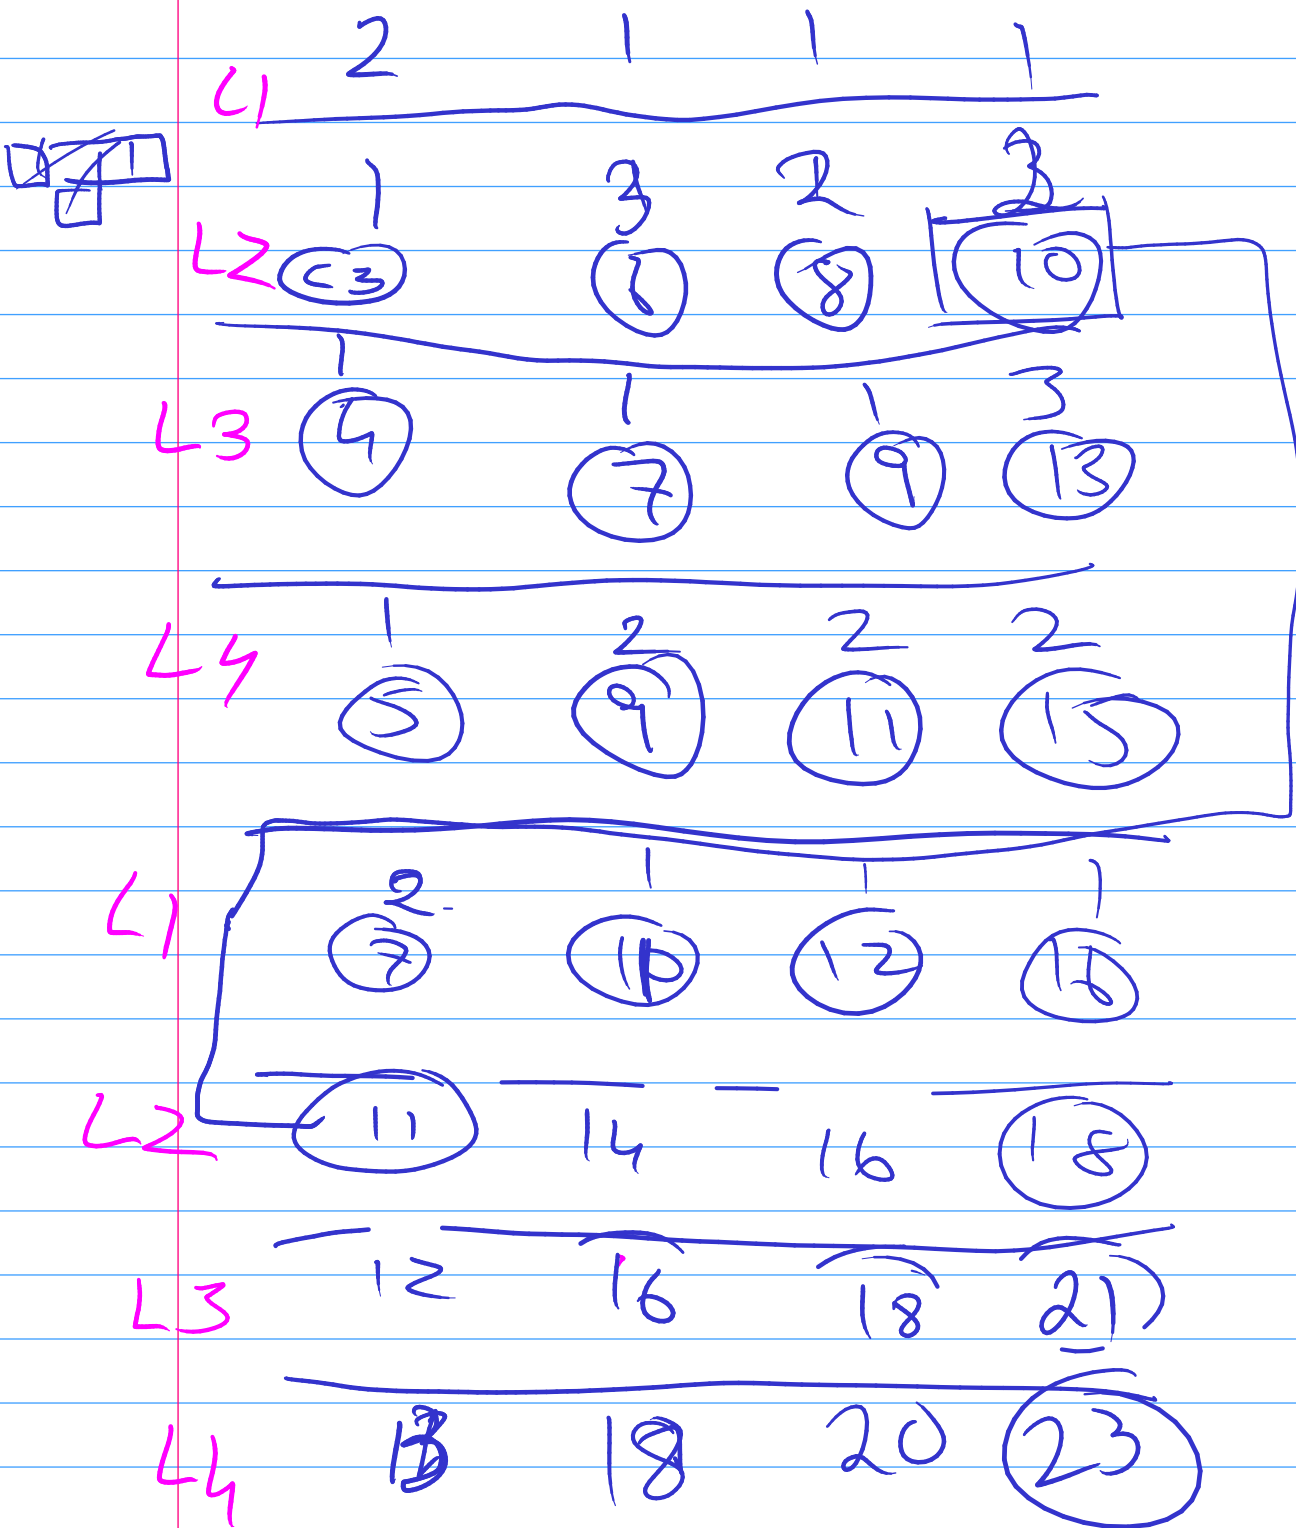 2 1 1 1
L1
1 3 2 3
L2 3 6 8 10
1 1 1 3
L3 4 7 9 13
1 2 2 2
L4 5 9 11 15
2 1 1 1
L1 7 10 12 16
L2 11 14 16 18
L3 12 16 18 21
L4 13 18 20 23